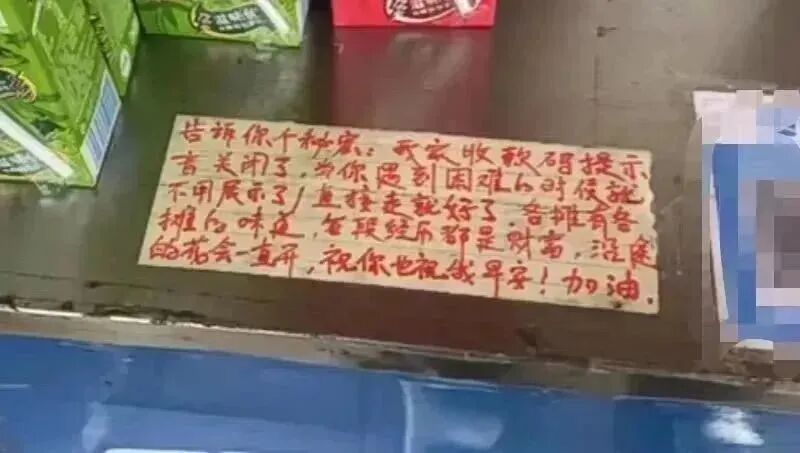 告诉你个秘密:我家收款码提示
音关闭了,当你遇到困难的时侯就
不用展示了!直接走就好了,各摊有各
摊的味道,每段经历都是财富,沿途
的花会一直开,祝你也祝我早安!加油.